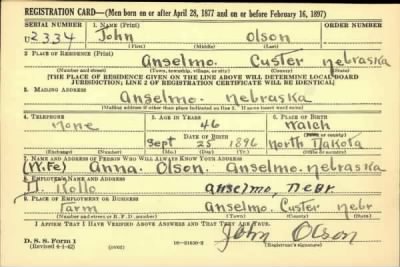 REGISTRATION CARD—(Men born on or after April 28, 1877 and on or before February 16, 1897)
SERIAL NUMBER 1. NAME (Print) ORDER NUMBER
U2334 John Olson
(First) (Middle) (Last)
2. PLACE OF RESIDENCE (Print)
Anselmo. Custer Nebraska
(Number and street) (Town, township, village, or city) (County) (State)
[THE PLACE OF RESIDENCE GIVEN ON THE LINE ABOVE WILL DETERMINE LOCAL BOARD
JURISDICTION; LINE 2 OF REGISTRATION CERTIFICATE WILL BE IDENTICAL]
3. MAILING ADDRESS
Anselmo. Nebraska
[Mailing address if other than place indicated on line 2. If same insert word same]
4. TELEPHONE 5. AGE IN YEARS 6. PLACE OF BIRTH
None 46 Walch
DATE OF BIRTH (Town or county)
Sept 25 1896 North Dakota
(Mo.) (Day) (Yr.) (State or country)
7. NAME AND ADDRESS OF PERSON WHO WILL ALWAYS KNOW YOUR ADDRESS
(Wife) Anna. Olson. Anselmo. Nebraska
8. EMPLOYER'S NAME AND ADDRESS
Rollo Anselmo, Nebr.
9. PLACE OF EMPLOYMENT OR BUSINESS
Farm Anselmo. Custer Nebr
(Number and street or R. F. D. number) (Town) (County) (State)
I AFFIRM THAT I HAVE VERIFIED ABOVE ANSWERS AND THAT THEY ARE TRUE.
D. S. S. Form 1 John Olson
(Revised 4-1-42) (Registrant's signature)